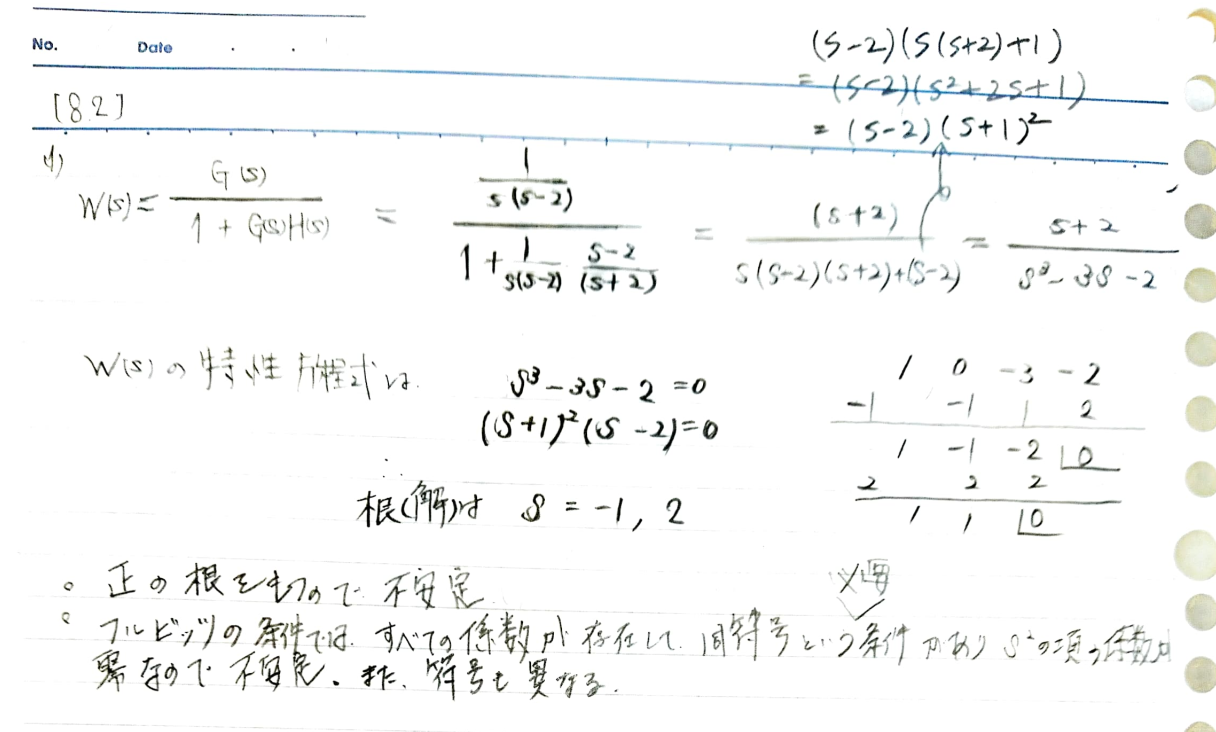 No. Date
(s-2)(s(s+2)+1)
= (s-2)(s²+2s+1)
= (s-2)(s+1)²
[8.2]
1)
W(s) = G(s) / (1 + G(s)H(s)) = (1 / (s(s-2))) / (1 + 1/(s(s-2)) (s-2)/(s+2)) = (s+2) / (s(s-2)(s+2)+(s-2)) = (s+2) / (s³-3s-2)
W(s)の特性方程式は
s³-3s-2=0
(s+1)²(s-2)=0
∴
根(解)は s = -1, 2
1 0 -3 -2
-1 -1 1 2
1 -1 -2 0
2 2 2
1 1 0
。正の根をもつので不安定
。フルビッツの条件では、すべての係数が存在して、同符号という条件があり s²の項の係数が
零なので不安定。また、符号も異なる。